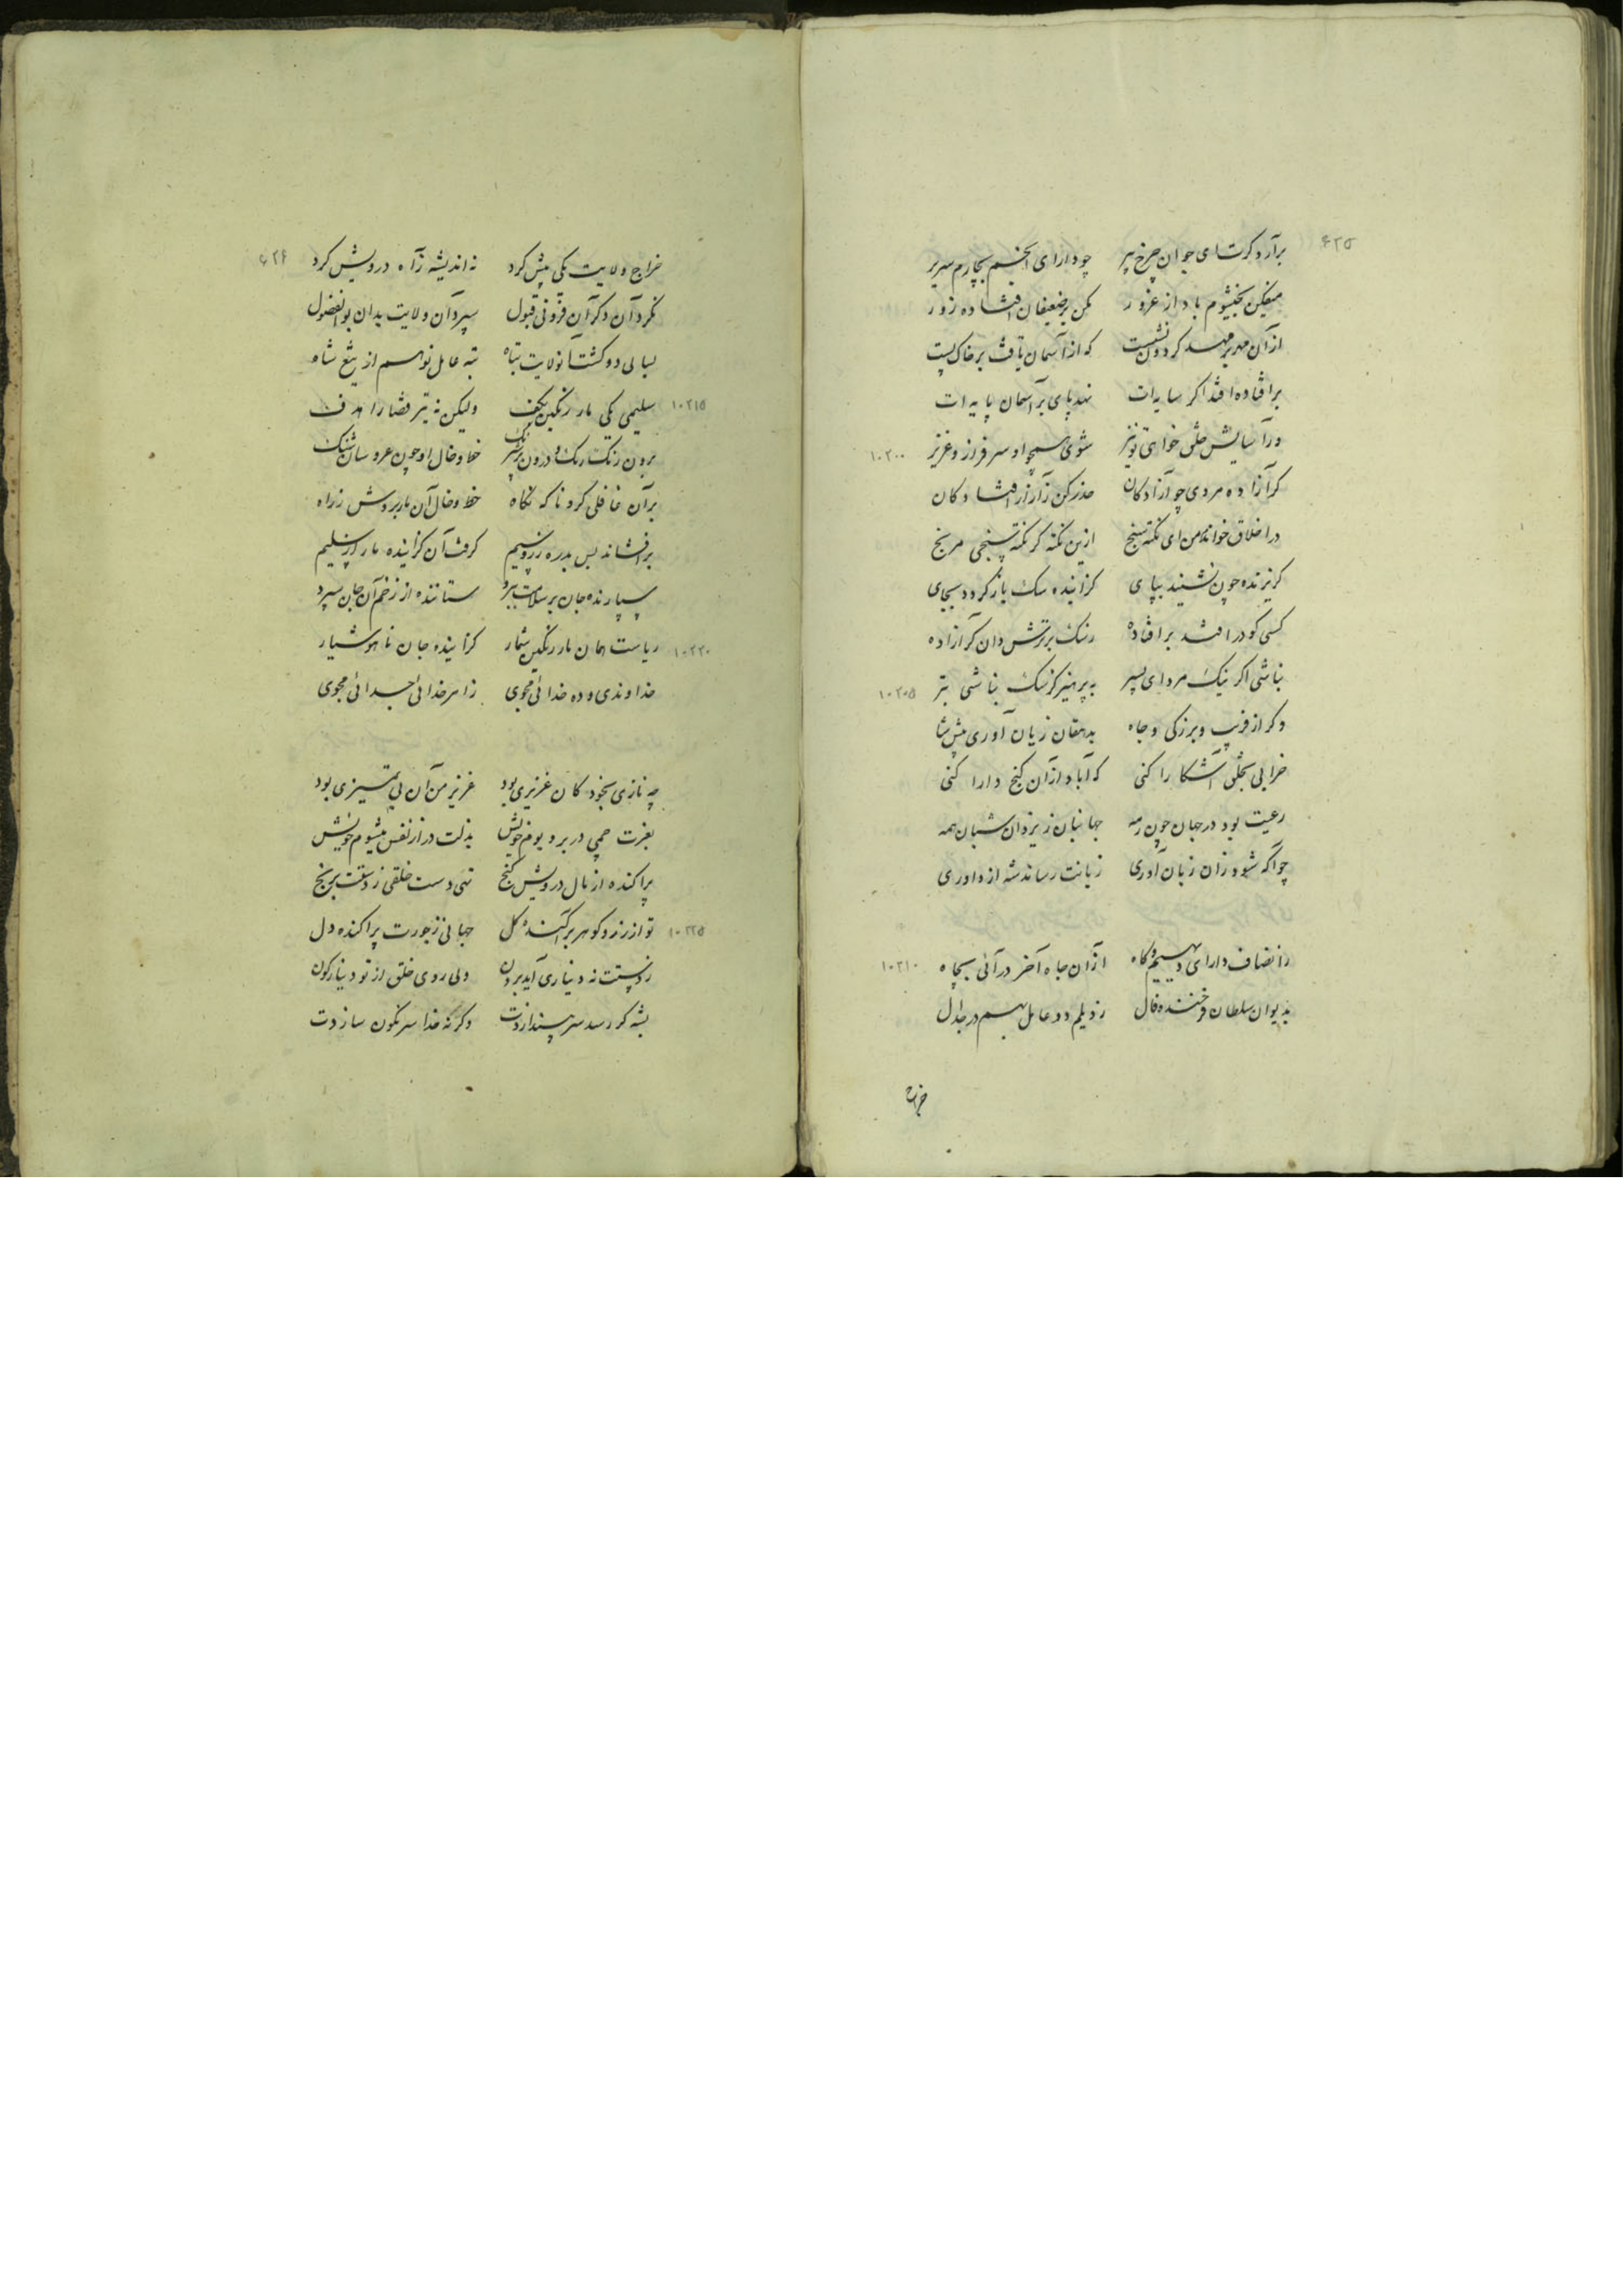 برآرد کرت ای جوان چرخ پیر چو دارای انجم بچارم سریر ۴۲۵
میفکن بخیشوم باد از غرور مکن بر ضعیفان افتاده زور
از آن مهر بر مهد کردون نشست که از آسمان تافت بر خاک پست
بر افتاده افتد اکر سایه‌ات نهد پای بر آسمان پایه‌ات
در آسایش خلق خواهی تو نیز شوی همچو او سرفراز و عزیز ۱۰۲۰۰
کر آزاده مردی چو آزادکان حذر کن ز آزار افتادکان
در اخلاق خواندم من ای نکته سنج ازین نکته کر نکته سنجی مرنج
کریزنده چون نشیند بپای کزاینده سک باز کردد بجای
کسی کو در افتد بر افتاده ز سک بدترش دان کر آزاده
نباشی اکر نیک مرد ای پسر بپرهیز کز سک نباشی بتر ۱۰۲۰۵
وکر از فریب و بزرکی و جاه بدهقان زیان آوری پیش شاه
خرابی بخلق آشکارا کنی که آباد از آن کنج دارا کنی
رعیت بود در جهان چون رمه جهانبان ز یزدان شبان همه
چو آکه شود زان زیان آوری زیانت رساند شه از داوری
ز انصاف دارای دیهیم و کاه از آن جاه آخر در آئی بچاه ۱۰۲۱۰
بدیوان سلطان فرخنده فال ز دیلم دو عامل بهم در جدال
خراج
خراج ولایت یکی پیش کرد نه اندیشه ز آه درویش کرد ۴۲۶
نکرد آن دکر آن فزونی قبول سپرد آن ولایت بدان بوالفضول
بسالی دو کشت آن ولایت تباه تبه عامل نو هم از تیغ شاه
سلیمی یکی مار رنکین بکف ولیکن نه تیر قضا را هدف ۱۰۲۱۵
برون رنک رنک و درون پر شرنک خط و خال او چون عروسان شنک
بر آن غافلی کرد ناکه نکاه خط و خال آن مار بردش ز راه
برافشاند بس بدره زر و سیم کرفت آن کزاینده مار از سلیم
سپارنده جان بر سلامت ببرد ستاننده از زخم آن جان سپرد
ریاست همان مار رنکین شمار کزاینده جان ناهوشیار ۱۰۲۲۰
خداوندی و ده خدائی مجوی ز امر خدائی جدائی مجوی
چه نازی بخود کان عزیزی بود عزیز من آن بی تمیزی بود
بعزت چمی در بر و بوم خویش بذلت در از نفس میشوم خویش
پراکنده از مال درویش کنج تهی دست خلقی ز دستت برنج
تو از زر و کوهر برآکنده کل جهانی ز جورت پراکنده دل ۱۰۲۲۵
ز دستت نه دیناری آید برون ولی روی خلق از تو دینارکون
بشه کر رسد سر بیندازدت وکرنه خدا سرنکون سازدت